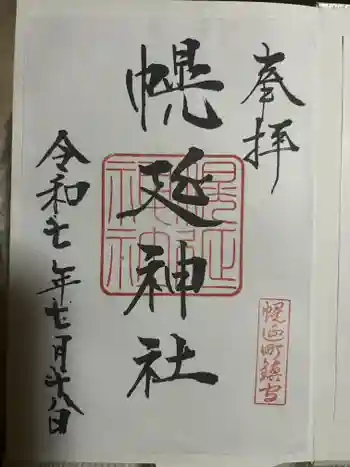 奉拝
幌延神社
幌延神社
幌延町鎮守
令和七年七月十八日